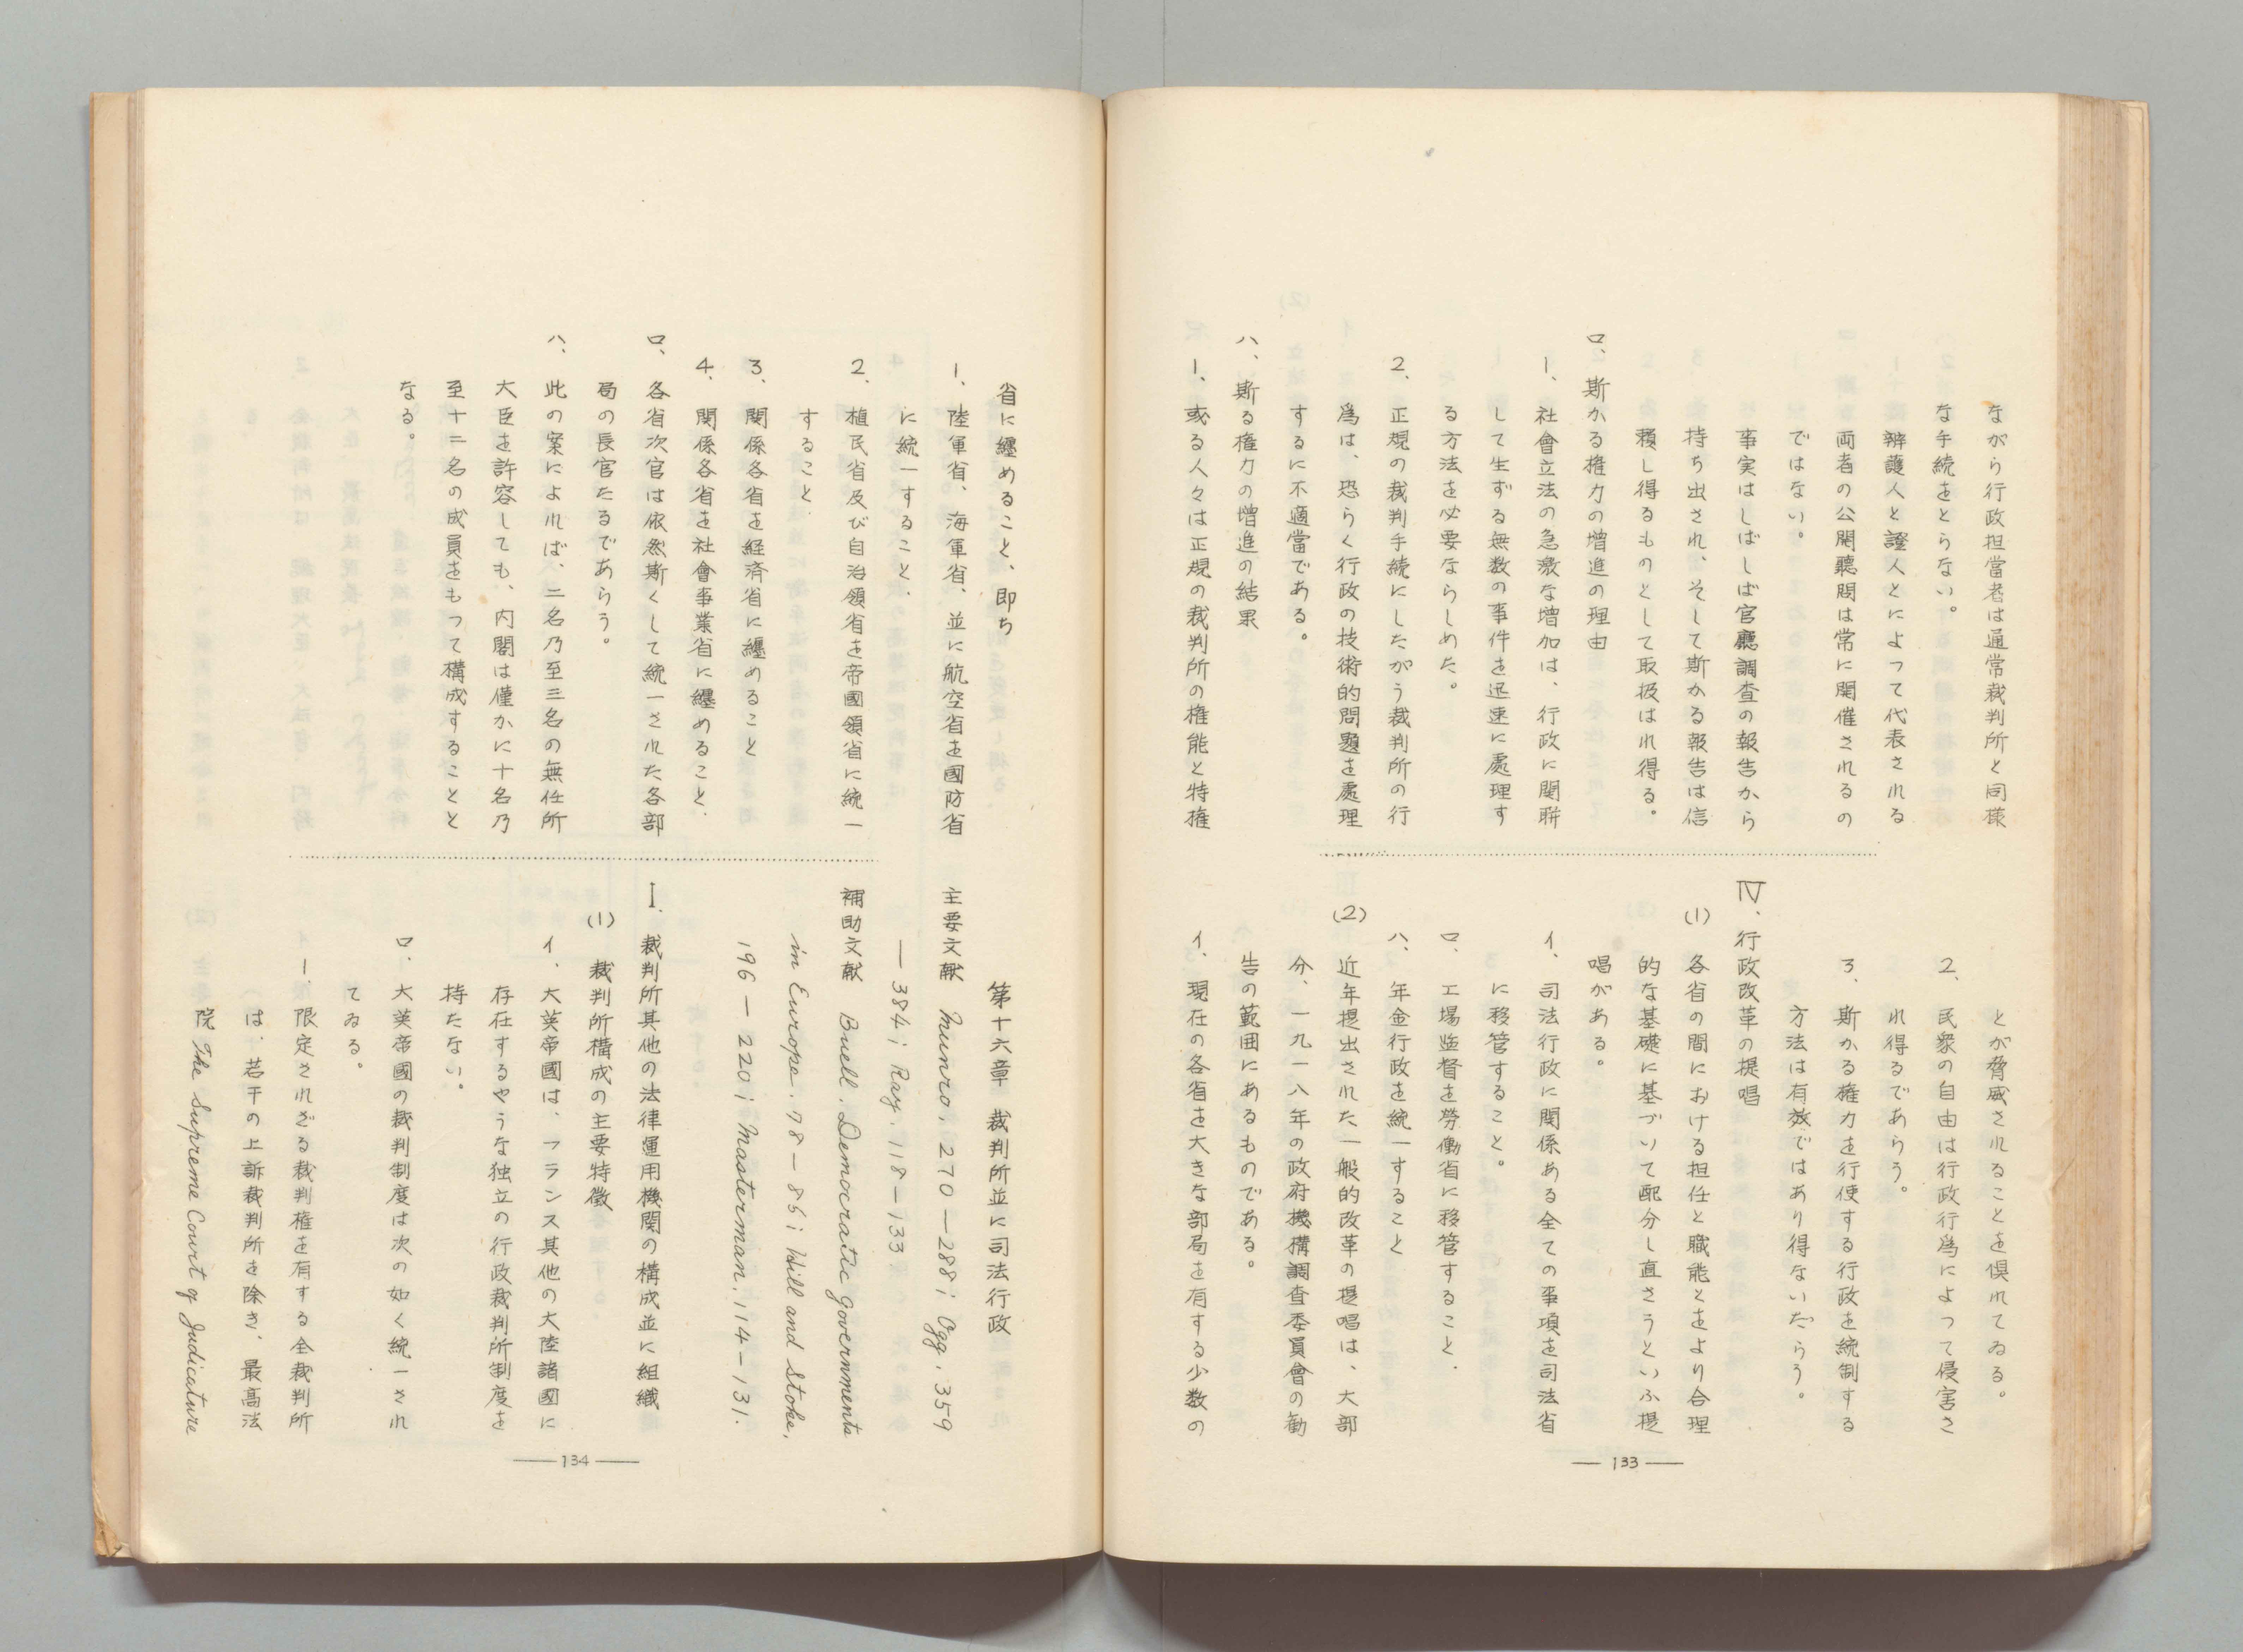 ながら行政担當者は通常裁判所と同様
な手続をとらない。
辨護人と證人とによって代表される
両者の公開聽問は常に開催されるの
ではない。
事実はしばしば官廳調査の報告から
持ち出され、そして斯かる報告は信
頼し得るものとして取扱はれ得る。
ロ、斯かる権力の増進の理由
1、社會立法の急激な増加は、行政に関聨
して生ずる無数の事件を迅速に處理す
る方法を必要ならしめた。
2、正規の裁判手続にしたがう裁判所の行
爲は、恐らく行政の技術的問題を處理
するに不適當である。
ハ、斯る権力の増進の結果
1、或る人々は正規の裁判所の権能と特権
とが脅威されることを倶れてゐる。
2、民衆の自由は行政行爲によって侵害さ
れ得るであらう。
3、斯かる権力を行使する行政を統制する
方法は有效ではあり得ないだらう。
Ⅳ、行政改革の提唱
(1) 各省の間における担任と職能とをより合理
的な基礎に基づいて配分し直さうといふ提
唱がある。
イ、司法行政に関係ある全ての事項を司法省
に移管すること。
ロ、工場監督を勞働省に移管すること.
ハ、年金行政を統一すること
(2) 近年提出された一般的改革の提唱は、大部
分、一九一八年の政府機構調査委員會の勧
告の範囲にあるものである。
イ、現在の各省を大きな部局を有する少数の
133
省に纒めること、即ち
1、陸軍省、海軍省、並に航空省を國防省
に統一すること.
2、植民省及び自治領省を帝國領省に統一
すること.
3、関係各省を経済省に纒めること
4、関係各省を社會事業省に纒めること.
ロ、各省次官は依然斯くして統一された各部
局の長官たるであらう。
ハ、此の案によれば、二名乃至三名の無任所
大臣を許容しても、内閣は僅かに十名乃
至十二名の成員をもって構成することと
なる。
第十六章 裁判所並に司法行政
主要文献 Munro, 270—288; Ogg, 359
—384; Ray, 118—133
補助文献 Buell, Democratic Governments
in Europe, 78—86; Hill and Stoke,
196—220; Masterman, 114—131.
Ⅰ. 裁判所其他の法律運用機関の構成並に組織
(1) 裁判所構成の主要特徴
イ、大英帝國は、フランス其他の大陸諸國に
存在するやうな独立の行政裁判所制度を
持たない。
ロ、大英帝國の裁判制度は次の如く統一され
てゐる。
1、限定されざる裁判権を有する全裁判所
は、若干の上訴裁判所を除き、最高法
院 The Supreme Court of Judicature
134